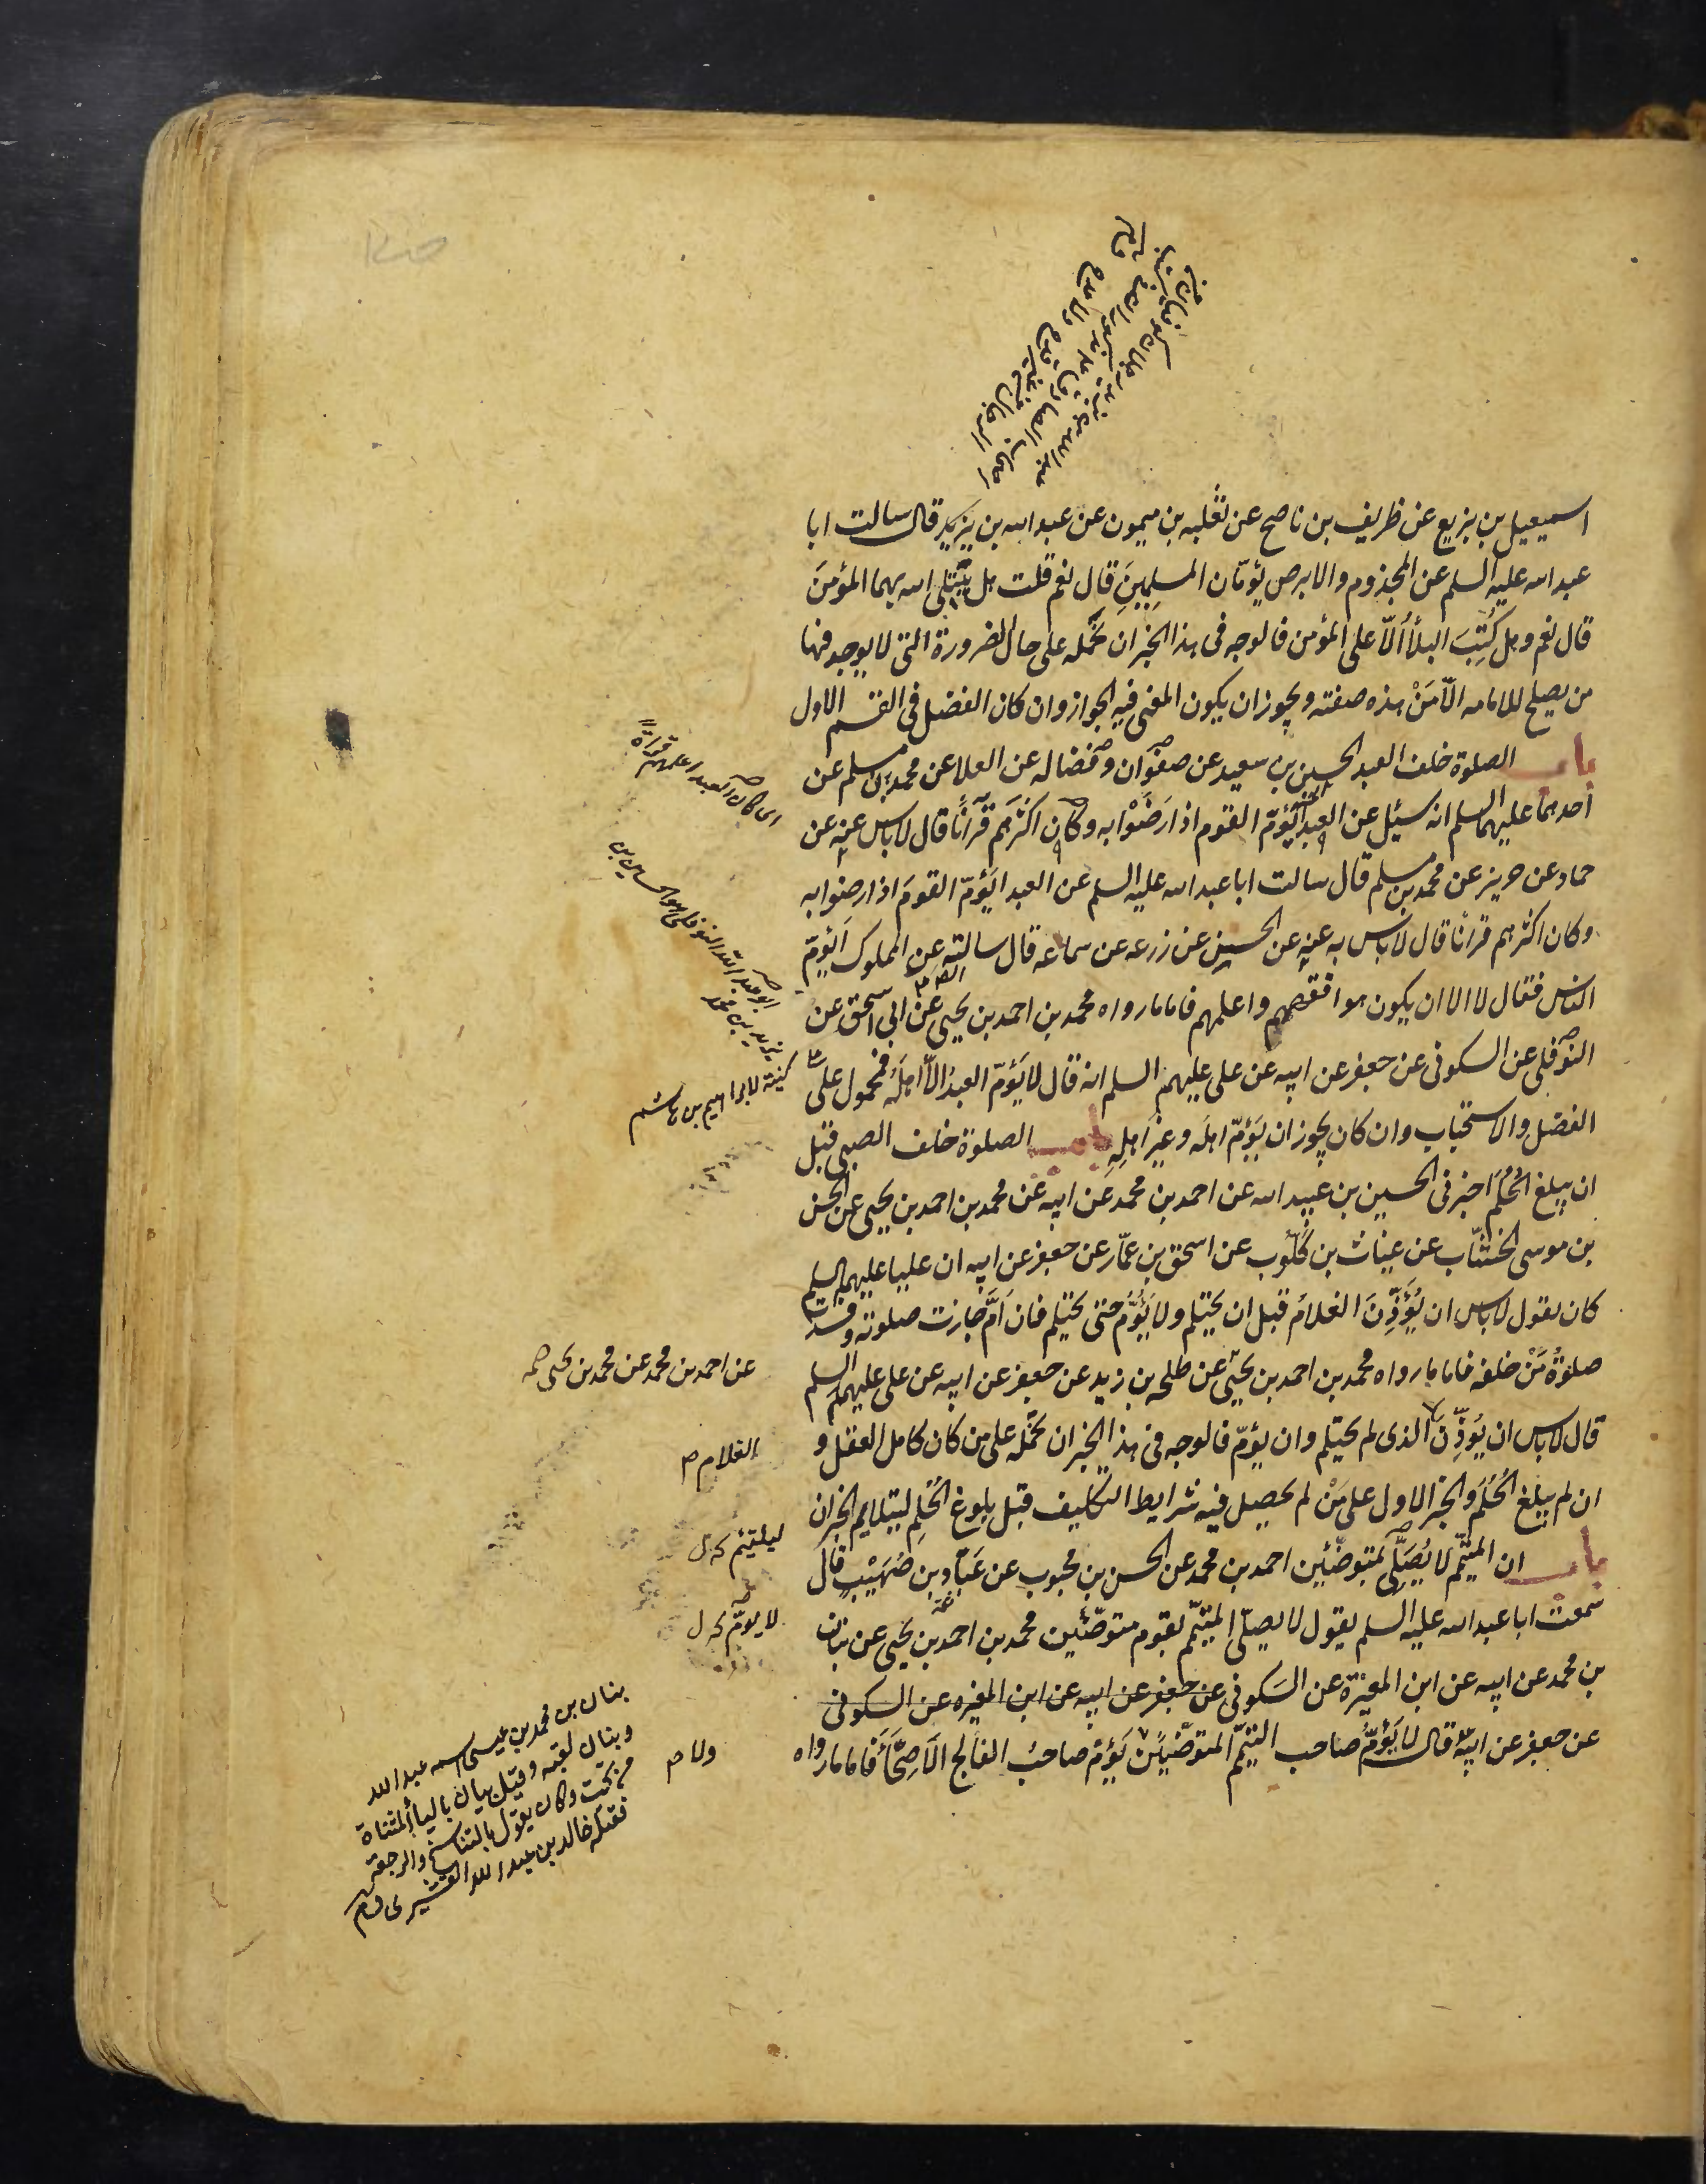 اسمعيل بن بزيع عن ظريف بن ناصح عن ثعلبه بن ميمون عن عبد الله بن يزيد قال سالت ابا
عبد الله عليه السلم عن المجذوم والابرص يؤمّان المسلِمِينَ قال نعم قلت هل يَبْتَلى الله بهما المؤمنَ
قال نعم وهل كُتِبَ البلأ الّا على المؤمن فالوجه فى هذا الخبر ان نحمله على حال الضرورة التى لا يوجد فيها
من يصلح للامامه الّا مَنْ هذه صفته ويجوز ان يكون المعنى فيه الجواز وان كان الفضل فى القسم الاول
باب الصلوة خلف العبد الحسين بن سعيد عن صفوان وفضاله عن العلا عن محمد بن مسلم عن
احدهما عليهما السلم انه سئيل عن العبد يَؤمّ القوم اذا رَضَوْا به وكان اكثرهم قرآنًا قال لا باس عنه عن
حماد عن حريز عن محمد بن مسلم قال سالت ابا عبد الله عليه السلم عن العبد ايَؤمّ القومَ اذا رضوا به
وكان اكثرهم قرأنا قال لا باس به عنه عن الحسن عن زرعه عن سماعه قال سالته عن المملوك اَيَؤمّ
الناس فقال لا الا ان يكون هو افقههم واعلمهم فاما ما رواه محمد بن احمد بن يحيى عن ابى اسحق عن
النوفلى عن السكونى عن جعفر عن ابيه عن على عليهم السلم انه قال لا يَؤمّ العبدُ الّا اهلَهُ فمحمول على
الفضل والاستحباب وان كان يجوز ان يَؤمّ اهلَه وغيرَ اهلِهِ باب الصلوة خلف الصبى قبل
ان يبلغ الحُلُمَ اخبرنى الحسين بن عبيد الله عن احمد بن محمد عن ابيه عن محمد بن احمد بن يحيى عن الحسن
بن موسى الخشّاب عن غياث بن كَلّوب عن اسحق بن عمّار عن جعفر عن ابيه ان عليا عليهم السلم
كان يقول لا باس ان يُؤَذِّنَ الغلامُ قبل ان يحتلم ولا يَؤُمُّ حتى يحتلم فان اَمَّ جازت صلوته وفسدت
صلوةُ مَنْ خلفه فاما ما رواه محمد بن احمد بن يحيى عن طلحه بن زيد عن جعفر عن ابيه عن على عليهم السلم
قال لا باس ان يُؤَذِّنَ الذى لم يحتلم وان يؤمّ فالوجه فى هذا الخبر ان نحمله على من كان كامل العقل و
ان لم يبلغ الحُلُمَ والخبر الاول على مَنْ لم يحصل فيه شرايط التكليف قبل بلوغ الحُلم ليتلايم الخبران
باب ان المتيمّم لا يُصَلّى بمتوضّئين احمد بن محمد عن الحسن بن محبوب عن عَبّاد بن صُهَيْب قال
سمعت ابا عبد الله عليه السلم يقول لا يصلّى المتيمّم بقوم متوضّئين محمد بن احمد بن يحيى عن بنان
بن محمد عن ابيه عن ابن المغيرة عن السكونى عن جعفر عن ابيه عن ابن المغيره عن السكونى
عن جعفر عن ابيه قال لا يَؤمّ صاحب التيمّم المتوضّئين يَؤمّ صاحبُ الفالج الاَصِحّأَ فاما ما رواه
اى كان العبد اعلمهم قراةً
ابو عبد الله النوفلى هو الحسين بن
يزيد بن محمد
كنيته لابراهيم بن هاشم
عن احمد بن محمد عن محمد بن يحيى
الغلام
ليلتئم
لا يؤمّ
ولا
بنان بن محمد بن عيسى اسمه عبد الله
وبنان لقبه وقيل بيان بالياء المثناة
من تحت وكان يقول بالتناسخ والرجعة
فقتله خالد بن عبد الله القشيرى